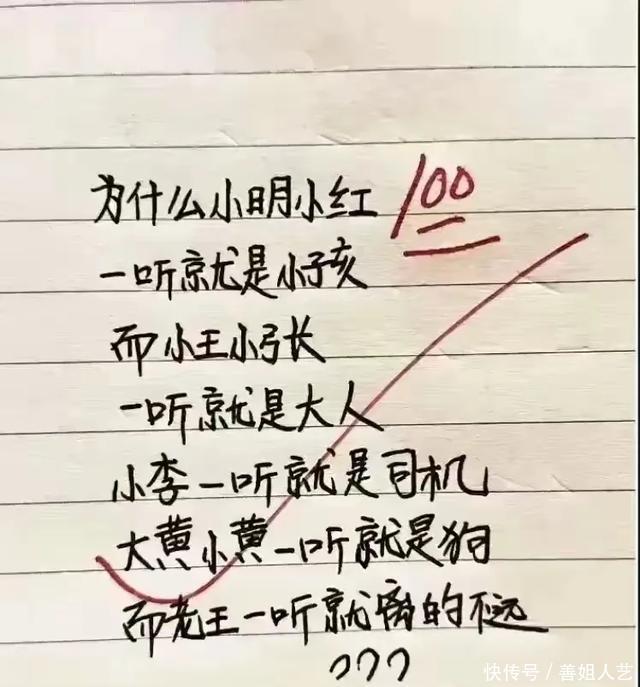 为什么小明小红
100
一听就是小孩
而小王小张
一听就是大人
小李一听就是司机
大黄小黄一听就是狗
而老王一听就离的不远
???
快传号/善姐人艺